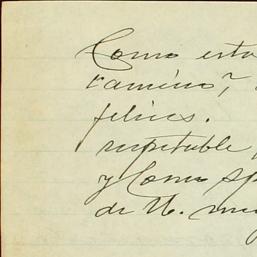 Como esta
camino,
felices.
respetable
y Como sp
de U. muy